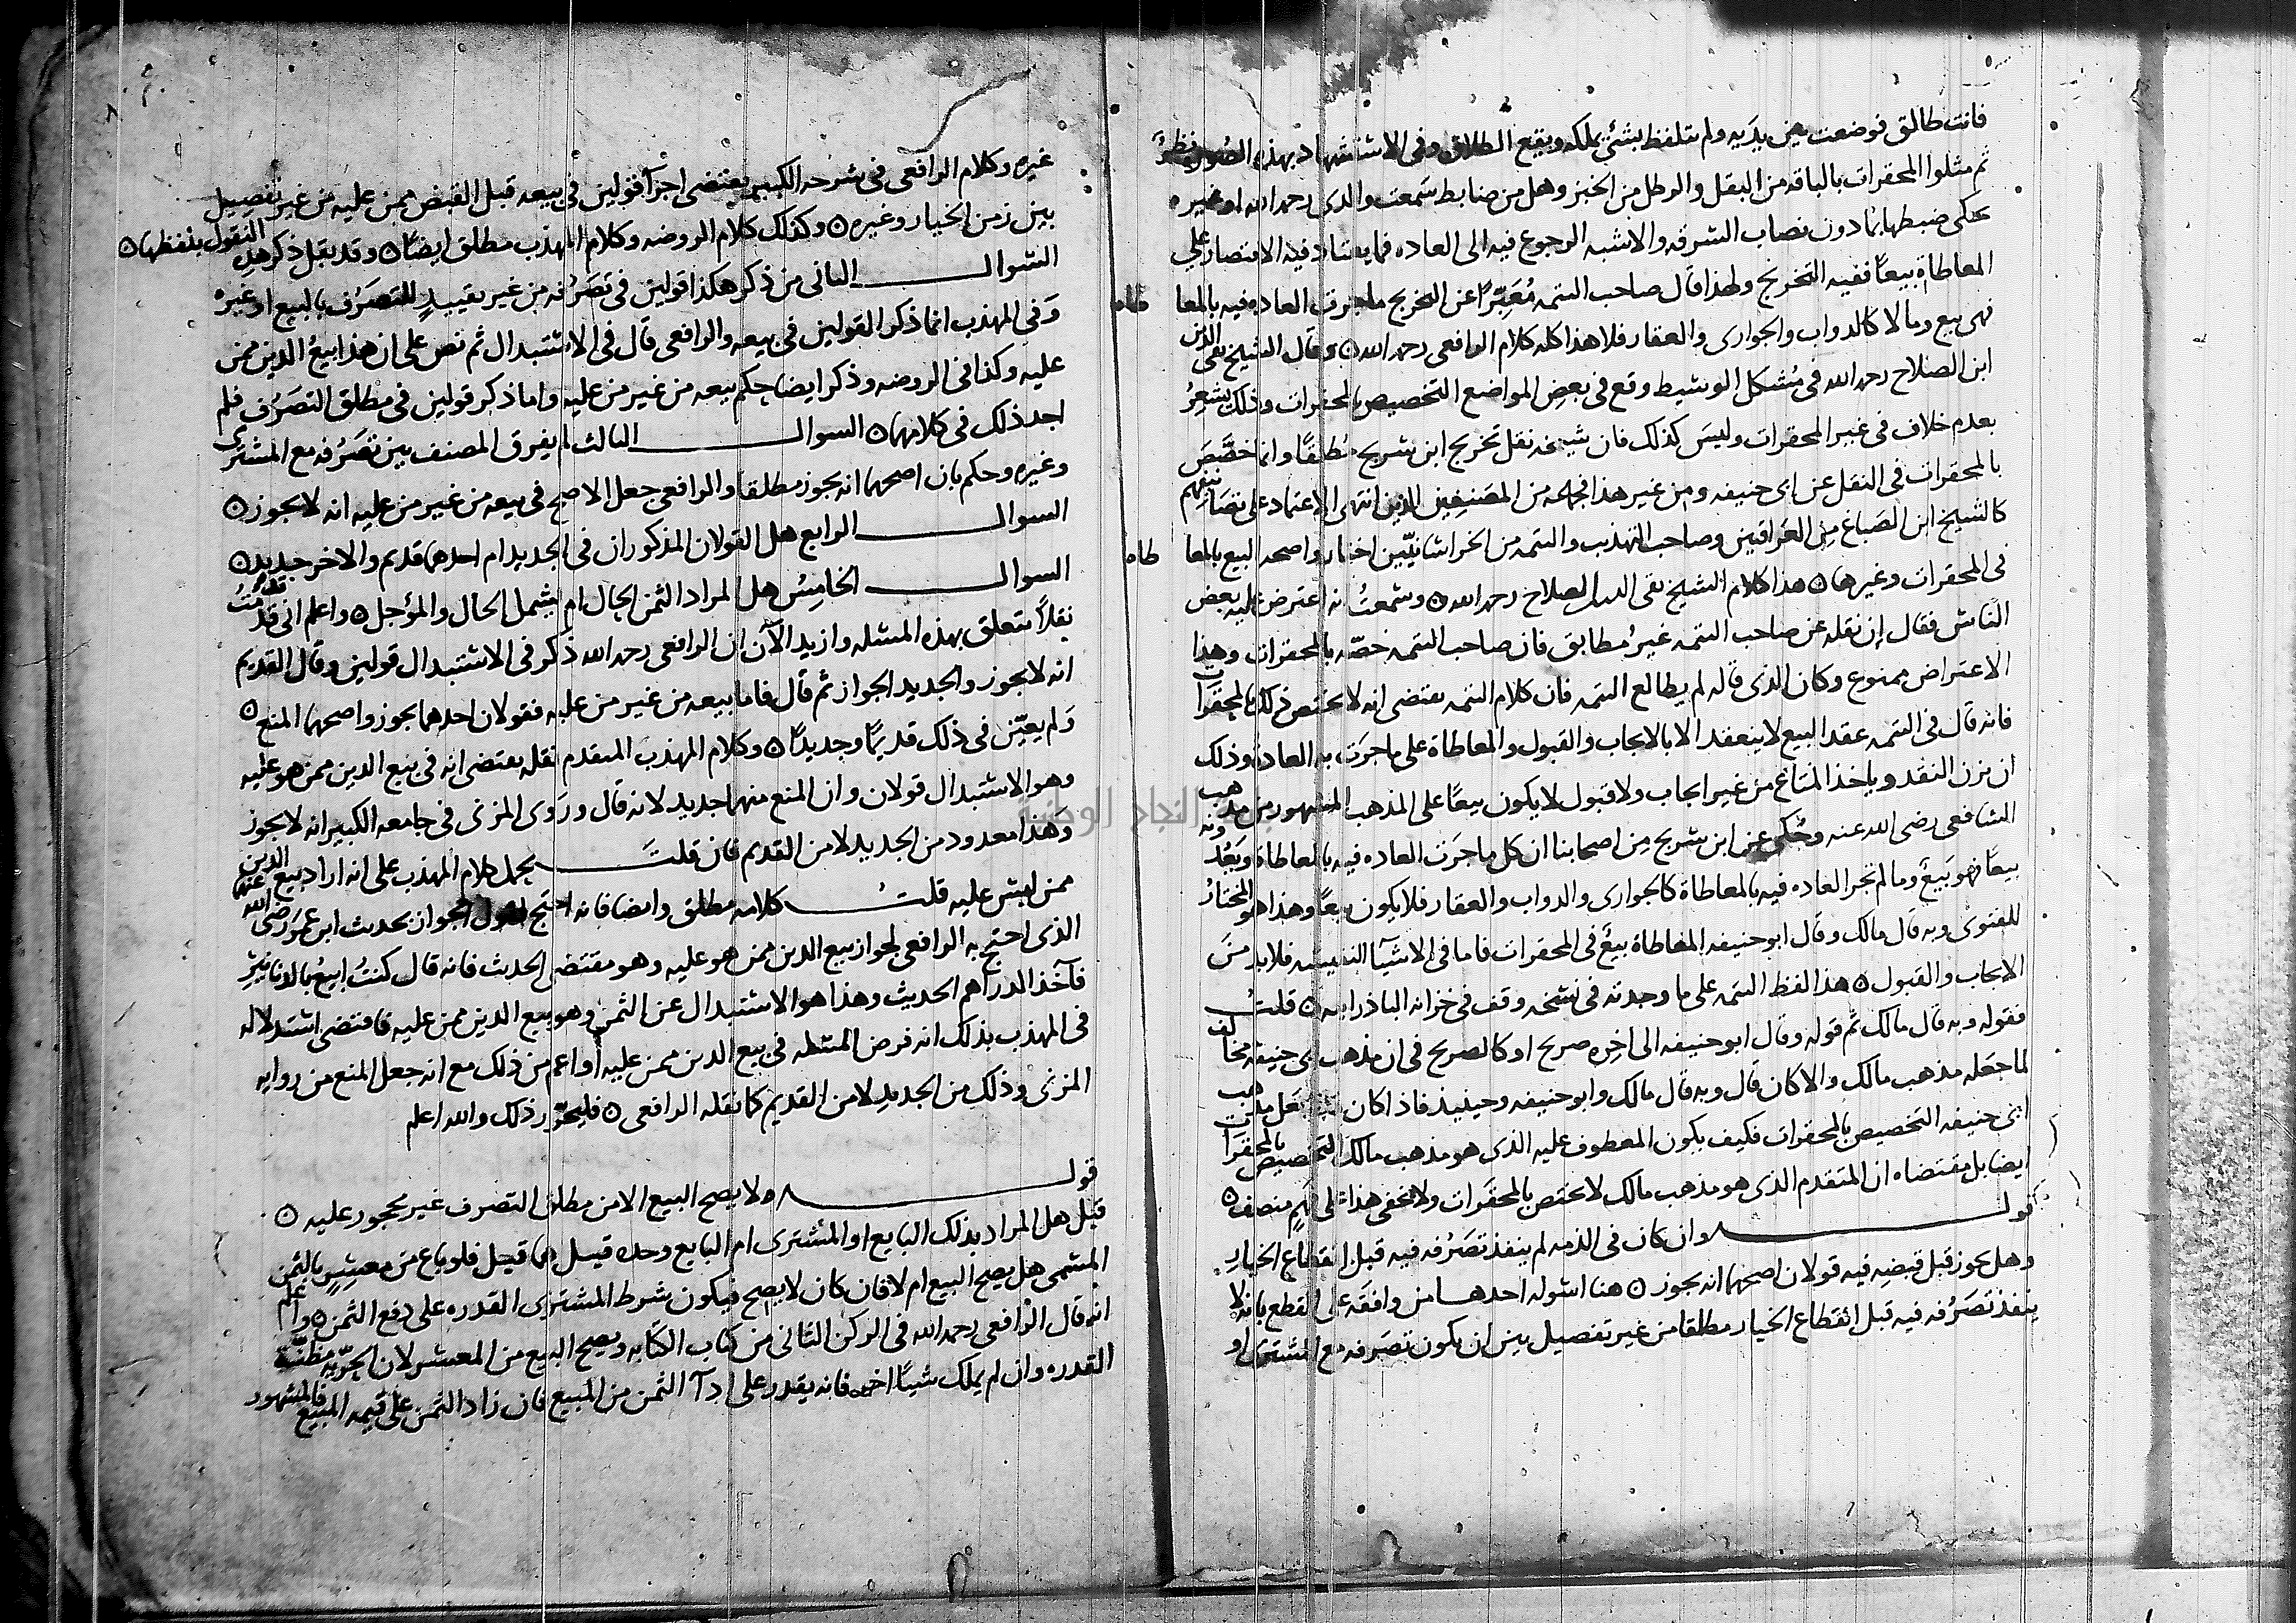 فانت طالق فوضعت بين يديه ولم تتلفظ بشئ يملكه ويقع الطلاق وفى الاستشهاد بهذه الصور نظر
ثم مثلوا المحقرات بالباقه من البقل والرطل من الخبز وهل من ضابط سمعت والدى رحمه الله او غيره
يحكى ضبطها بما دون نصاب السرقه والاشبه الرجوع فيه الى العاده فما يعتاد فيه الاقتصار على
المعاطاة بيعًا ففيه التخريج ولهذا قال صاحب التتمه مُعَبِّرًا عن التخريج ما جرت العاده فيه بالمعاطاه
فهى بيع وما لا كالدواب والجوارى والعقار فلا هذا كله كلام الرافعى رحمه الله ٥ وقال الشيخ تقى الدين
ابن الصلاح رحمه الله فى مُشكل الوسيط وقع فى بعض المواضع التخصيص بالمحقرات وذلك يشعِرُ
بعدم خلاف فى غير المحقرات وليسَ كذلك فان شيوخه نقل تخريج ابن سُريج مُطلقًا وانما خصَّصَ
بالمحقرات فى النقل عن ابى حنيفه ومن غير هذا فجماعه من المصَنفين الذين انتهى الاعتماد على تصَانيفهم
كالشيخ ابن الصَباغ مِن العراقيين وصاحب التهذب والتتمه من الخراسَانيّين اختار واصحه البيع بالمعاطاه
فى المحقرات وغيرها ٥ هذا كلام الشيخ تقى الدين ابن الصلاح رحمه الله ٥ وسَمعتُ انه اعترض عليه بعض
الناس فقال إن نقله عن صاحب التتمه غيرُ مطابق فان صاحب التتمه خصّه بالمحقرات وهذا
الاعتراض ممنوع وكان الذى قاله لم يطالع التتمه فان كلام التتمه يقتضى انه لا يختص ذلك بالمحقرات
فانه قال فى التتمه عقد البيع لا ينعقد الا بالايجاب والقبول والمعاطاة على ما جرَت به العادة وذلك
ان يزن النقد وياخذ المتاع من غير ايجاب ولا قبول لا يكون بيعًا على المذهب المشهور من مذهب
الشافعى رضى الله عنه وحُكى عن ابن سُريج مِن اصحابنا ان كل ما جرَت العاده فيه بالمعاطاة ويَعُدونه
بيعًا فهو بَيعٌ وما لم تجر العاده فيه بالمعاطاة كالجوارى والدواب والعقار فلا يكون بيعًا وهذا هو المختارُ
للفتوىٰ وبه قال مالك وقال ابو حنيفه المعاطاة بيعٌ فى المحقرات فاما فى الاشيآ النفيسَه فلا بد منَ
الايجاب والقبول ٥ هذا لفظ التتمه على ما وجدته فى نسَخه وقف فى خزانه الباذرايه ٥ قلتُ
فقوله وبه قال مالك ثم قوله وقال ابو حنيفه الى اخِره صريح او كالصريح فى ان مذهب ابى حنيفه مخالف
لما جعَله مذهب مالك والا كان قال وبه قال مالك وابو حنيفه وحينيذ فاذا كان جعل مذهب
ابى حنيفه التخصيص بالمحقرات فكيف يكون المعطوف عليه الذى هو مذهب مالك التخصيص بالمحقرات
ايضا بل مقتضاه ان المتقدم الذى هو مذهب مالك لا يختص بالمحقَرات ولا يخفى هذا على فهِمٍ منصف ٥
قولــــــه وان كان فى الذمه لم ينفذ تصَرُفه فيه قبل انقطاع الخيار
وهل يجوز قبل قبضِه فيه قولان اصحهما انه يجوز ٥ هنا اسوله احدهــا من وافقَه على القطع بانه لا
ينفذ تصَرُفه فيه قبل انقطاع الخيار مطلقا من غير تفصيل بين ان يكون تصَرفه مع المشترى او
غيره وكلام الرافعى فى شرحه الكبير يقتضى اجرآ قولين فى بيعه قبل القبض ممن عليه من غير تفصيل
بين زمن الخيار وغيره ٥ وكذلك كلام الروضه وكلام المهذب مطلق ايضًا ٥ وقد نقل ذكر هذه النقول بلفظها ٥
السُوالــــ الثانى من ذكر هكذا قولين فى تصَرُفه من غير تقييدٍ للتصَرُف بالبيع او غيره
وَفى المهذب انما ذكر القولين فى بيعه والرافعى قال فى الاستبدال ثم نص على ان هذا بيعُ الدين ممن
عليه وكذا فى الروضه وذكر ايضا حكم بيعه من غير من عليه واما ذكر قولين فى مطلق التصَرُف فلم
اجد ذلك فى كلامهما ٥ السوالــــ الثالث لم يفرق المصنف بين تصَرُفه مع المشترى
وغيره وحكم بان اصحهما انه يجوز مطلقا والرافعى جعل الاصح فى بيعه من غير من عليه انه لا يجوز ٥
السوالــــ الرابع هل القولان المذكوران فى الجديد ام احدهما قديم والاخر جديد ٥
السوالــــ الخامِسُ هل المراد الثمن الحال ام يشمل الحال والمؤجل ٥ واعلم انى قد قدمتُ
نقلاً يتعلق بهذه المسَله وازيد الآن ان الرافعى رحمه الله ذكر فى الاستبدال قولين وقال القديم
انه لا يجوز والجديد الجواز ثم قال فاما بيعه من غير من عليه فقولان احدهما يجوز واصحهما المنع ٥
وَلم يعيّن فى ذلك قديمًا وجديدًا ٥ وكلام المهذب المتقدم نقله يقتضى انه فى بيع الدين ممن هو عليه
وهو الاستبدال قولان وان المنع منهما جديد لانه قال وروى المزنى فى جامعه الكبير انه لا يجوز
وَهذا معدود من الجديد لا من القديم فان قلتَ يحمل كلام المهذب على انه اراد بيع الدين
ممن ليسَ عليه قلتُ كلامه مطلق وايضا فانه احتج لقول الجواز بحديث ابن عُمَر رضى الله عنهما
الذى احتج به الرافعى لجواز بيع الدين ممن هو عليه وهو مقتضى الحديث فانه قال كنتُ ابيعُ بالدنانير
فآخذ الدراهم الحديث وهذا هو الاستبدال عن الثمن وهو بيع الدين ممن عليه فاقتضى استدلاله
فى المهذب بذلك انه فرض المسَله فى بيع الدين ممن عليه أو اعم من ذلك مع انه جعل المنع من روايه
المزنى وذلك من الجديد لا من القديم كما نقله الرافعى ٥ فليحرّر ذلك والله اعلم
قولــــــه ولا يصح البيع الا من مطلق التصرف غير محجور عليه ٥
قيل هل المراد بذلك البايع او المشترى ام البايع وحده قيل هما قيل فلو باع من معسِرٍ بالثمن
المسَمى هل يصح البيع ام لا فان كان لا يصح فيكون شرط المشترى القدره على دفع الثمن ٥ واعلم
انه قال الرافعى رحمه الله فى الركن الثانى من كتاب الكتابه ويصح البيع من المعسر لان الحرّيه مظنّة
القدره وان لم يملك شيئًا اخر فانه يقدر على ادآ الثمن من المبيع فان زاد الثمن على قيمه المبيع فالمشهور